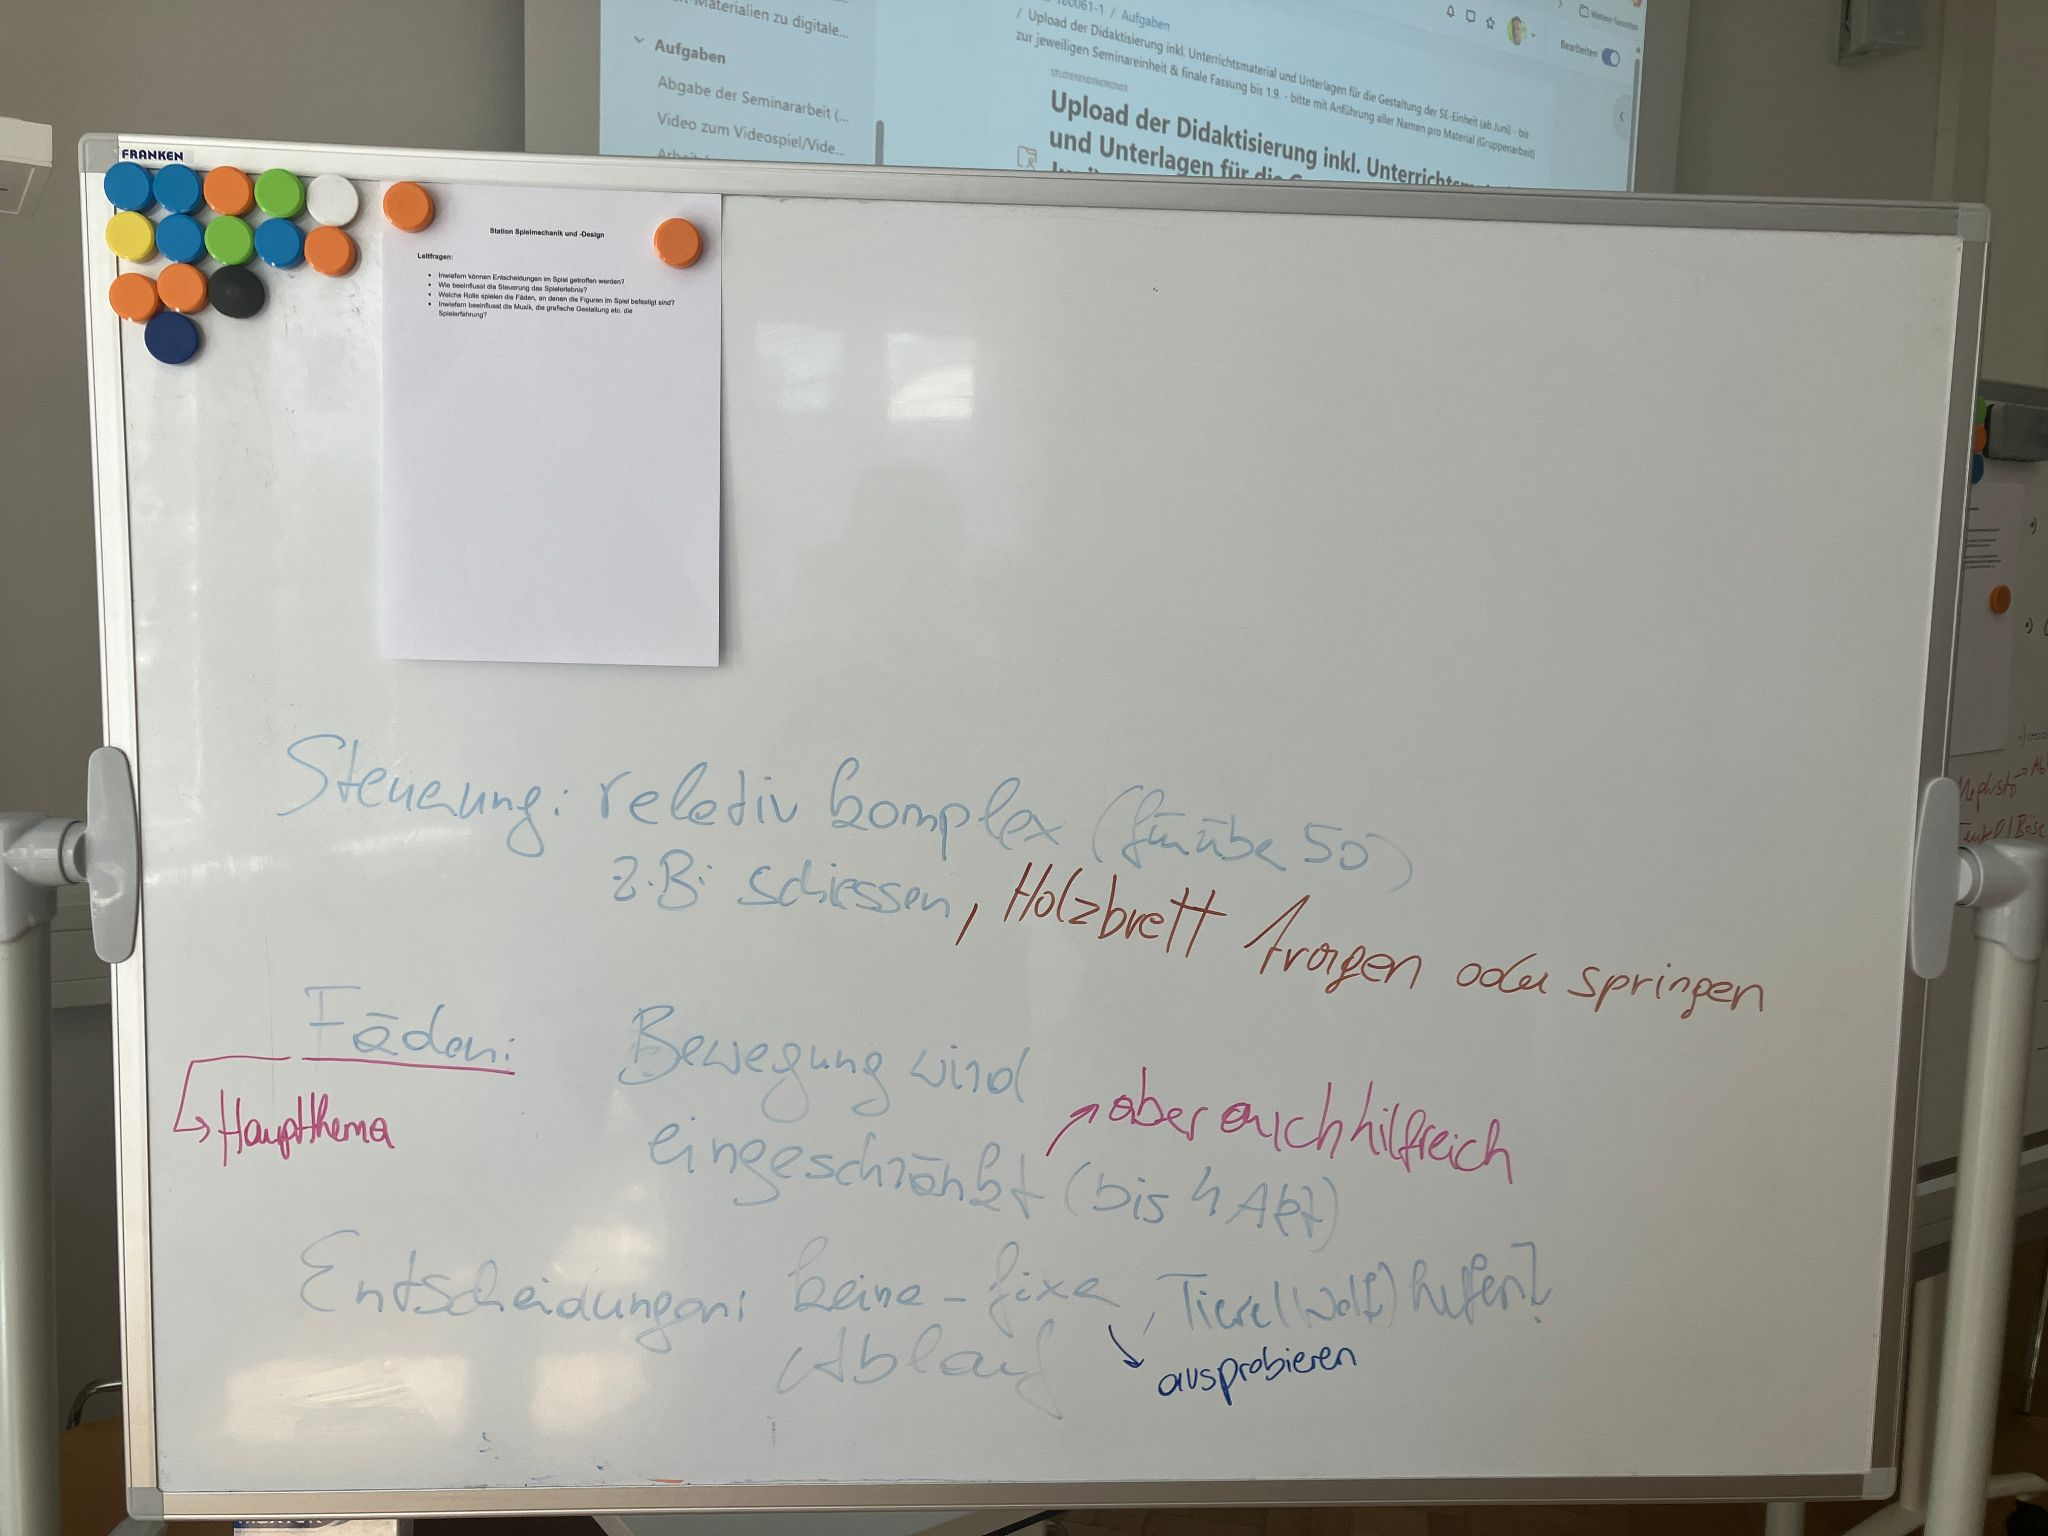 Materialien zu digitale...
Aufgaben
Abgabe der Seminararbeit (...
Video zum Videospiel/Vide...
100061-1 / Aufgaben
/ Upload der Didaktisierung inkl. Unterrichtsmaterial und Unterlagen für die Gestaltung der SE-Einheit (ab Juni) - bis
zur jeweiligen Seminareinheit & finale Fassung bis 1.9. - bitte mit Anführung aller Namen pro Material (Gruppenarbeit)
Weitere Favoriten
Bearbeiten
Upload der Didaktisierung inkl.
und Unterlagen für die
FRANKEN
Station Spielmechanik und -Design
Leitfragen:
• Inwiefern können Entscheidungen im Spiel getroffen werden?
• Wie beeinflusst die Steuerung das Spielerlebnis?
• Welche Rolle spielen die Fäden, an denen die Figuren im Spiel befestigt sind?
• Inwiefern beeinflusst die Musik, die grafische Gestaltung etc. die
Spielerfahrung?
Steuerung: relativ komplex (für übe 50)
z.B: schiessen, Holzbrett tragen oder springen
Fäden: Bewegung wird
→ Hauptthema
eingeschränkt (bis 4 Akt)
→ aber auch hilfreich
Entscheidungen: keine - fixe, Tiere (Wolf) helfen?
Ablauf
→ ausprobieren
Mephisto →